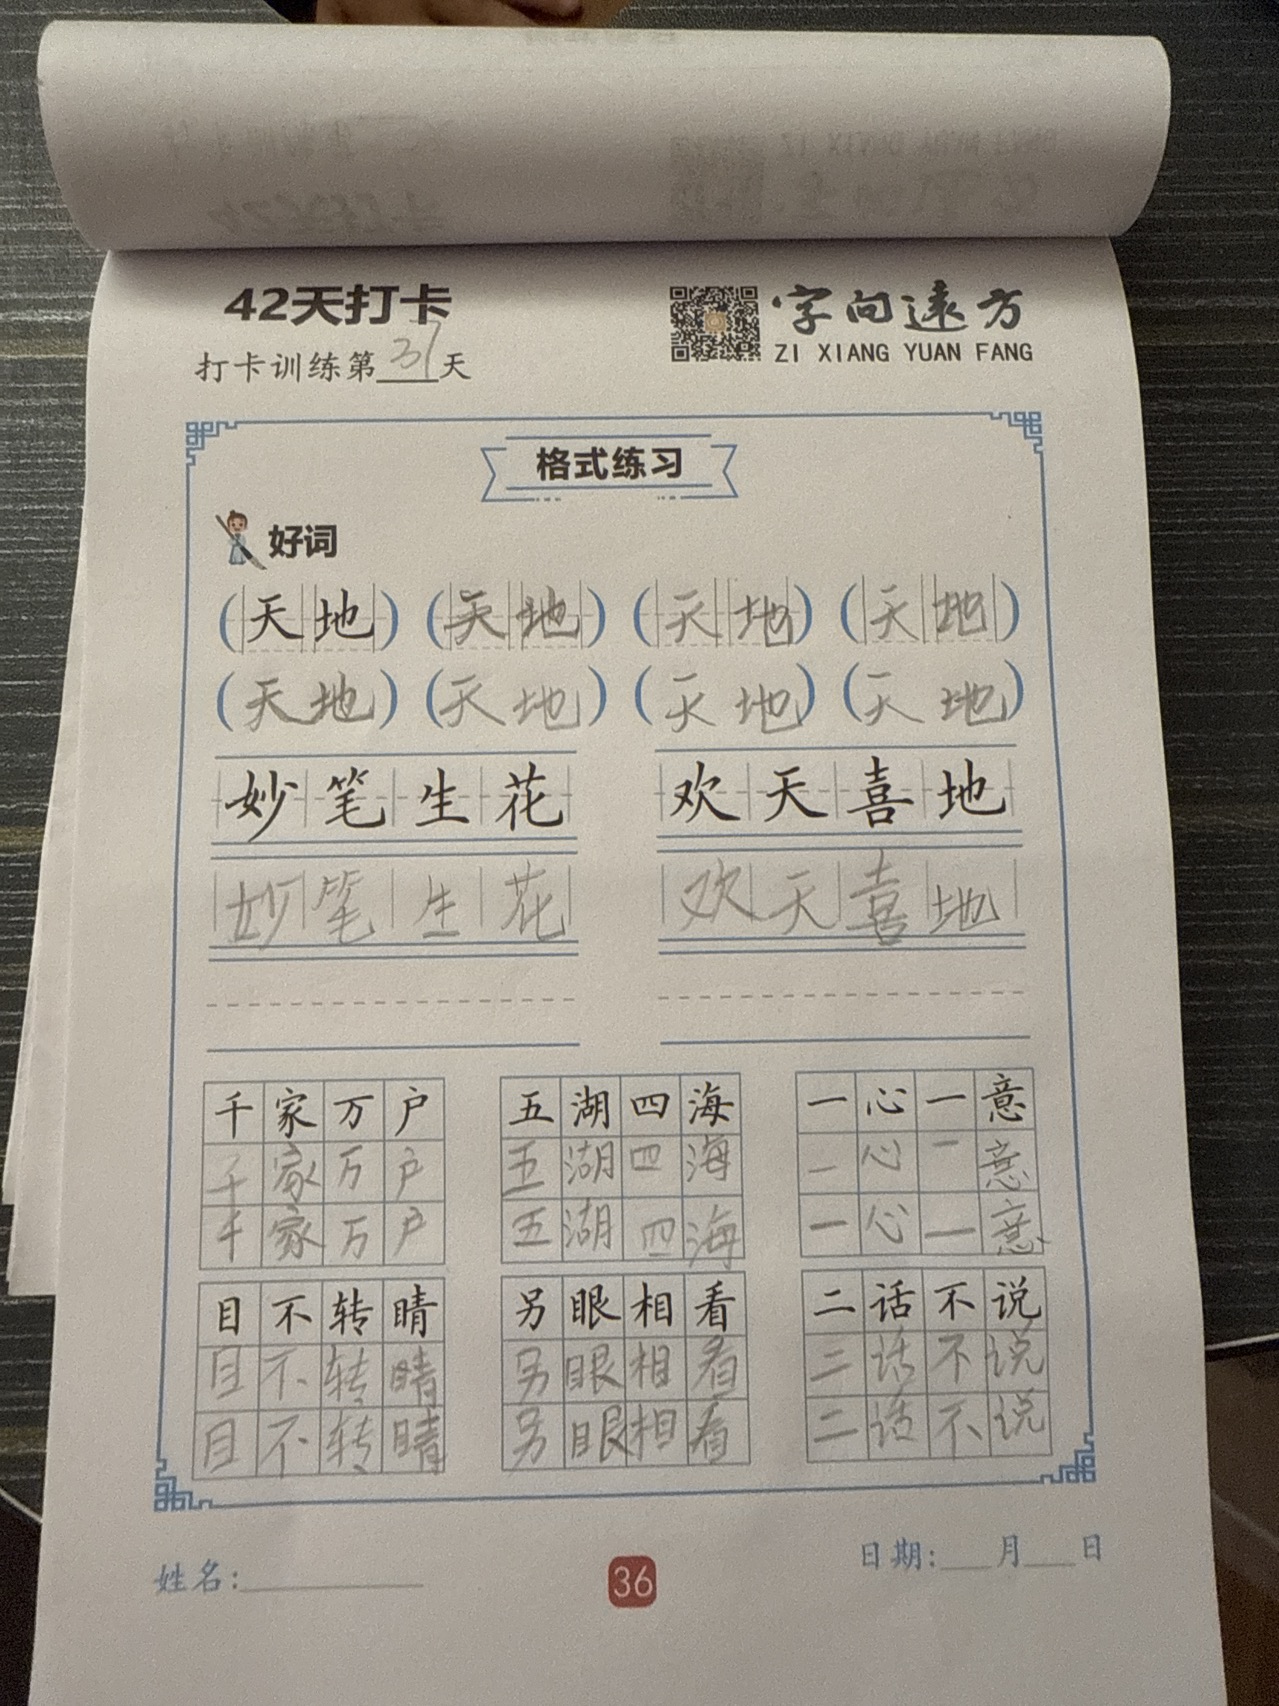 42天打卡
字向远方
打卡训练第31天
ZI XIANG YUAN FANG
格式练习
好词
(天地) (天地) (天地) (天地)
(天地) (天地) (天地) (天地)
妙笔生花 欢天喜地
妙笔生花 欢天喜地
千家万户 五湖四海 一心一意
千家万户 五湖四海 一心一意
千家万户 五湖四海 一心一意
目不转睛 另眼相看 二话不说
目不转睛 另眼相看 三话不说
目不转睛 另眼相看 二话不说
姓名:______ 36 日期:___月___日